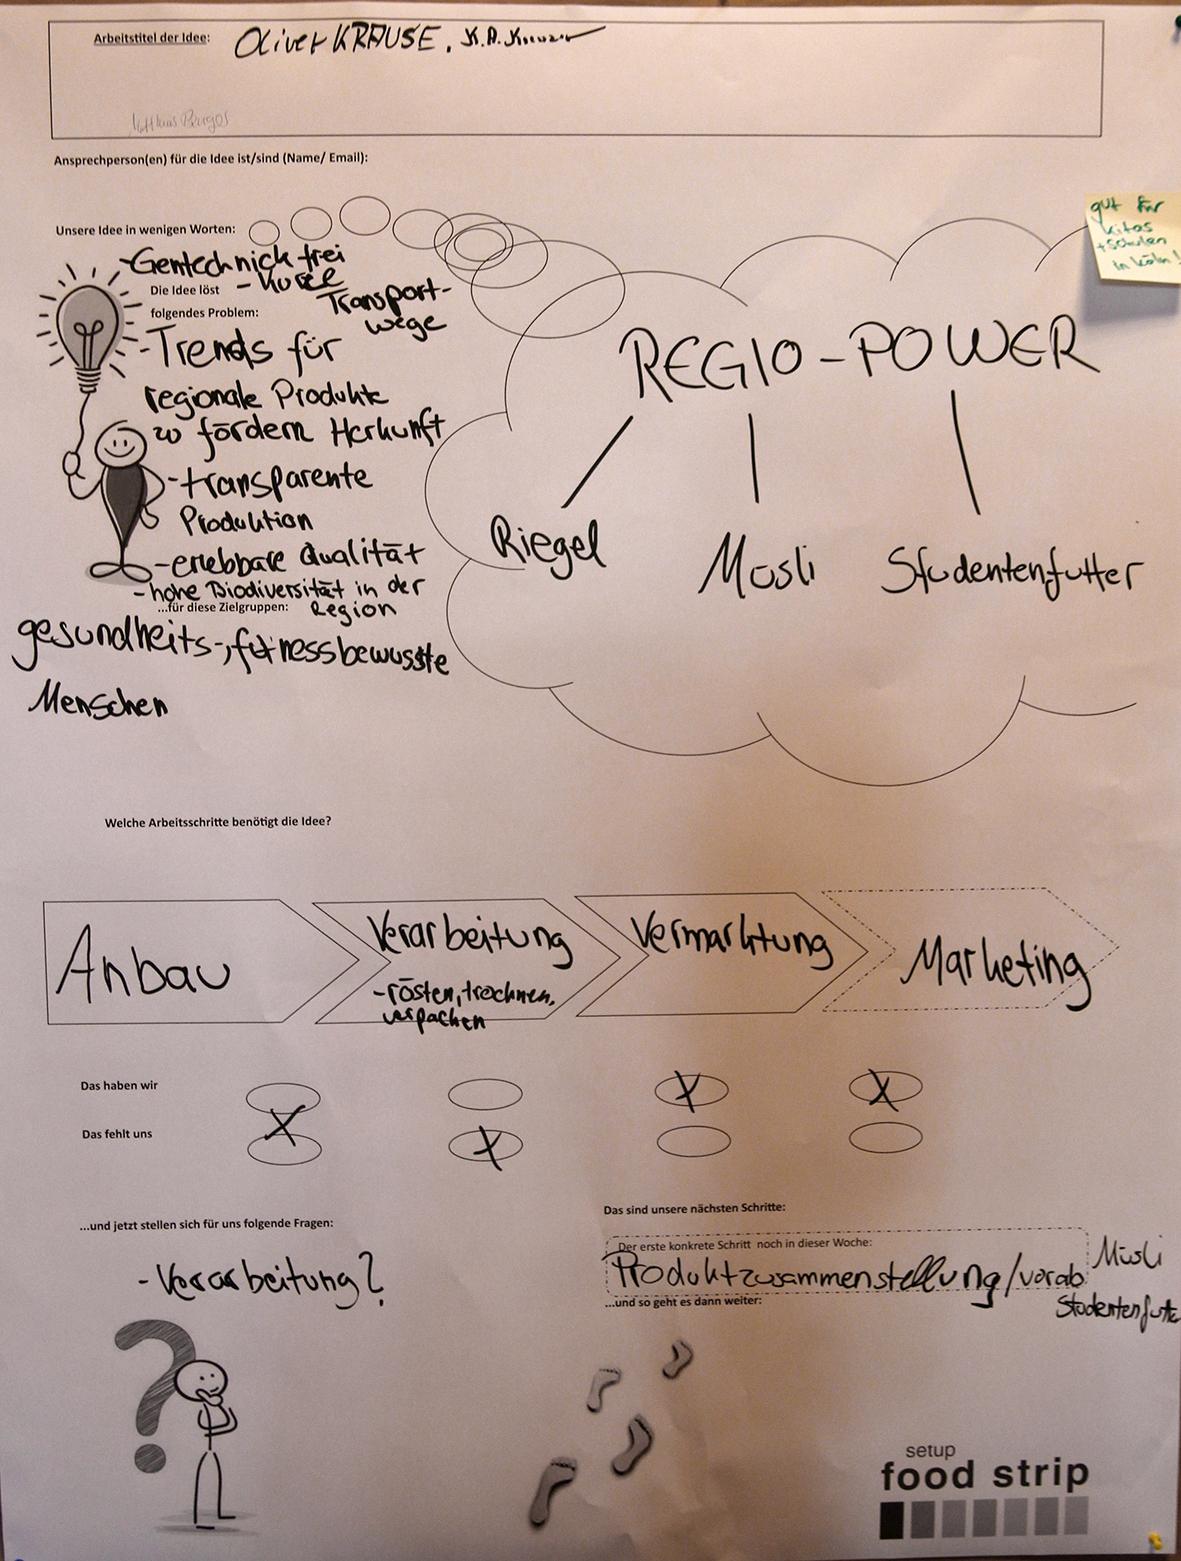 Arbeitstitel der Idee: Oliver KRAUSE, K.A.
Ansprechperson(en) für die Idee ist/sind (Name/ Email):
gut für
Kitas
+ Schulen
in Köln!
Unsere Idee in wenigen Worten:
- Gentechnick frei
Die Idee löst - kurze
Transport-
folgendes Problem:
wege
- Trends für
regionale Produkte
zu fördern Herkunft
- transparente
Produktion
- erlebbare Qualität
- hohe Biodiversität in der
...für diese Zielgruppen: Region
gesundheits-, fitnessbewusste
Menschen
REGIO-POWER
Riegel Müsli Studentenfutter
Welche Arbeitsschritte benötigt die Idee?
Anbau Verarbeitung Vermarktung Marketing
- rösten, trocknen,
verpacken
Das haben wir X X
X
Das fehlt uns X
...und jetzt stellen sich für uns folgende Fragen:
- Verarbeitung?
Das sind unsere nächsten Schritte:
Der erste konkrete Schritt noch in dieser Woche:
Produktzusammenstellung/vorab Müsli
Studentenfutter
...und so geht es dann weiter:
?
setup
food strip